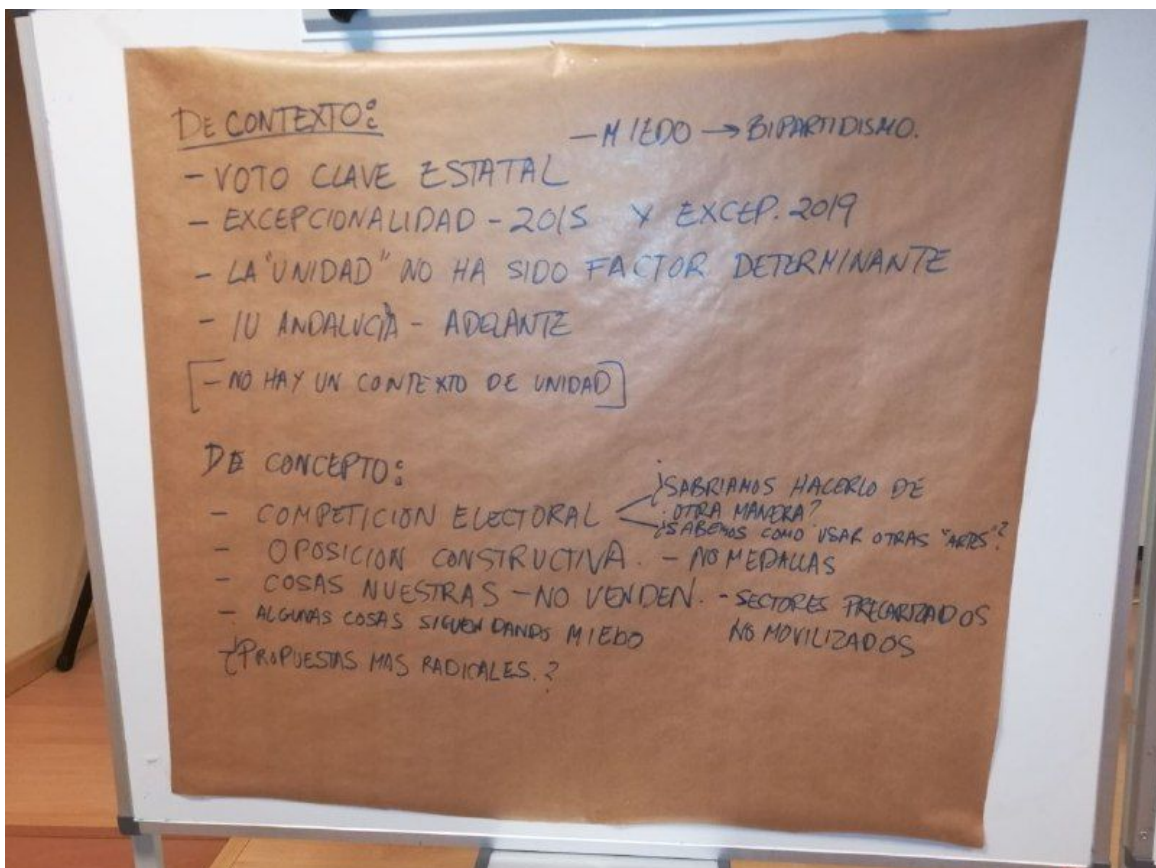 DE CONTEXTO:
- MIEDO → BIPARTIDISMO.
- VOTO CLAVE ESTATAL
- EXCEPCIONALIDAD - 2015 Y EXCEP. 2019
- LA "UNIDAD" NO HA SIDO FACTOR DETERMINANTE
- IU ANDALUCÍA - ADELANTE
[- NO HAY UN CONTEXTO DE UNIDAD]
DE CONCEPTO:
- COMPETICION ELECTORAL
¿SABRIAMOS HACERLO DE
OTRA MANERA?
¿SABEMOS COMO USAR OTRAS "ARTES"?
- OPOSICION CONSTRUCTIVA. - NO MEDALLAS
- COSAS NUESTRAS - NO VENDEN. - SECTORES PRECARIZADOS
NO MOVILIZADOS
- ALGUNAS COSAS SIGUEN DANDO MIEDO
¿PROPUESTAS MAS RADICALES.?